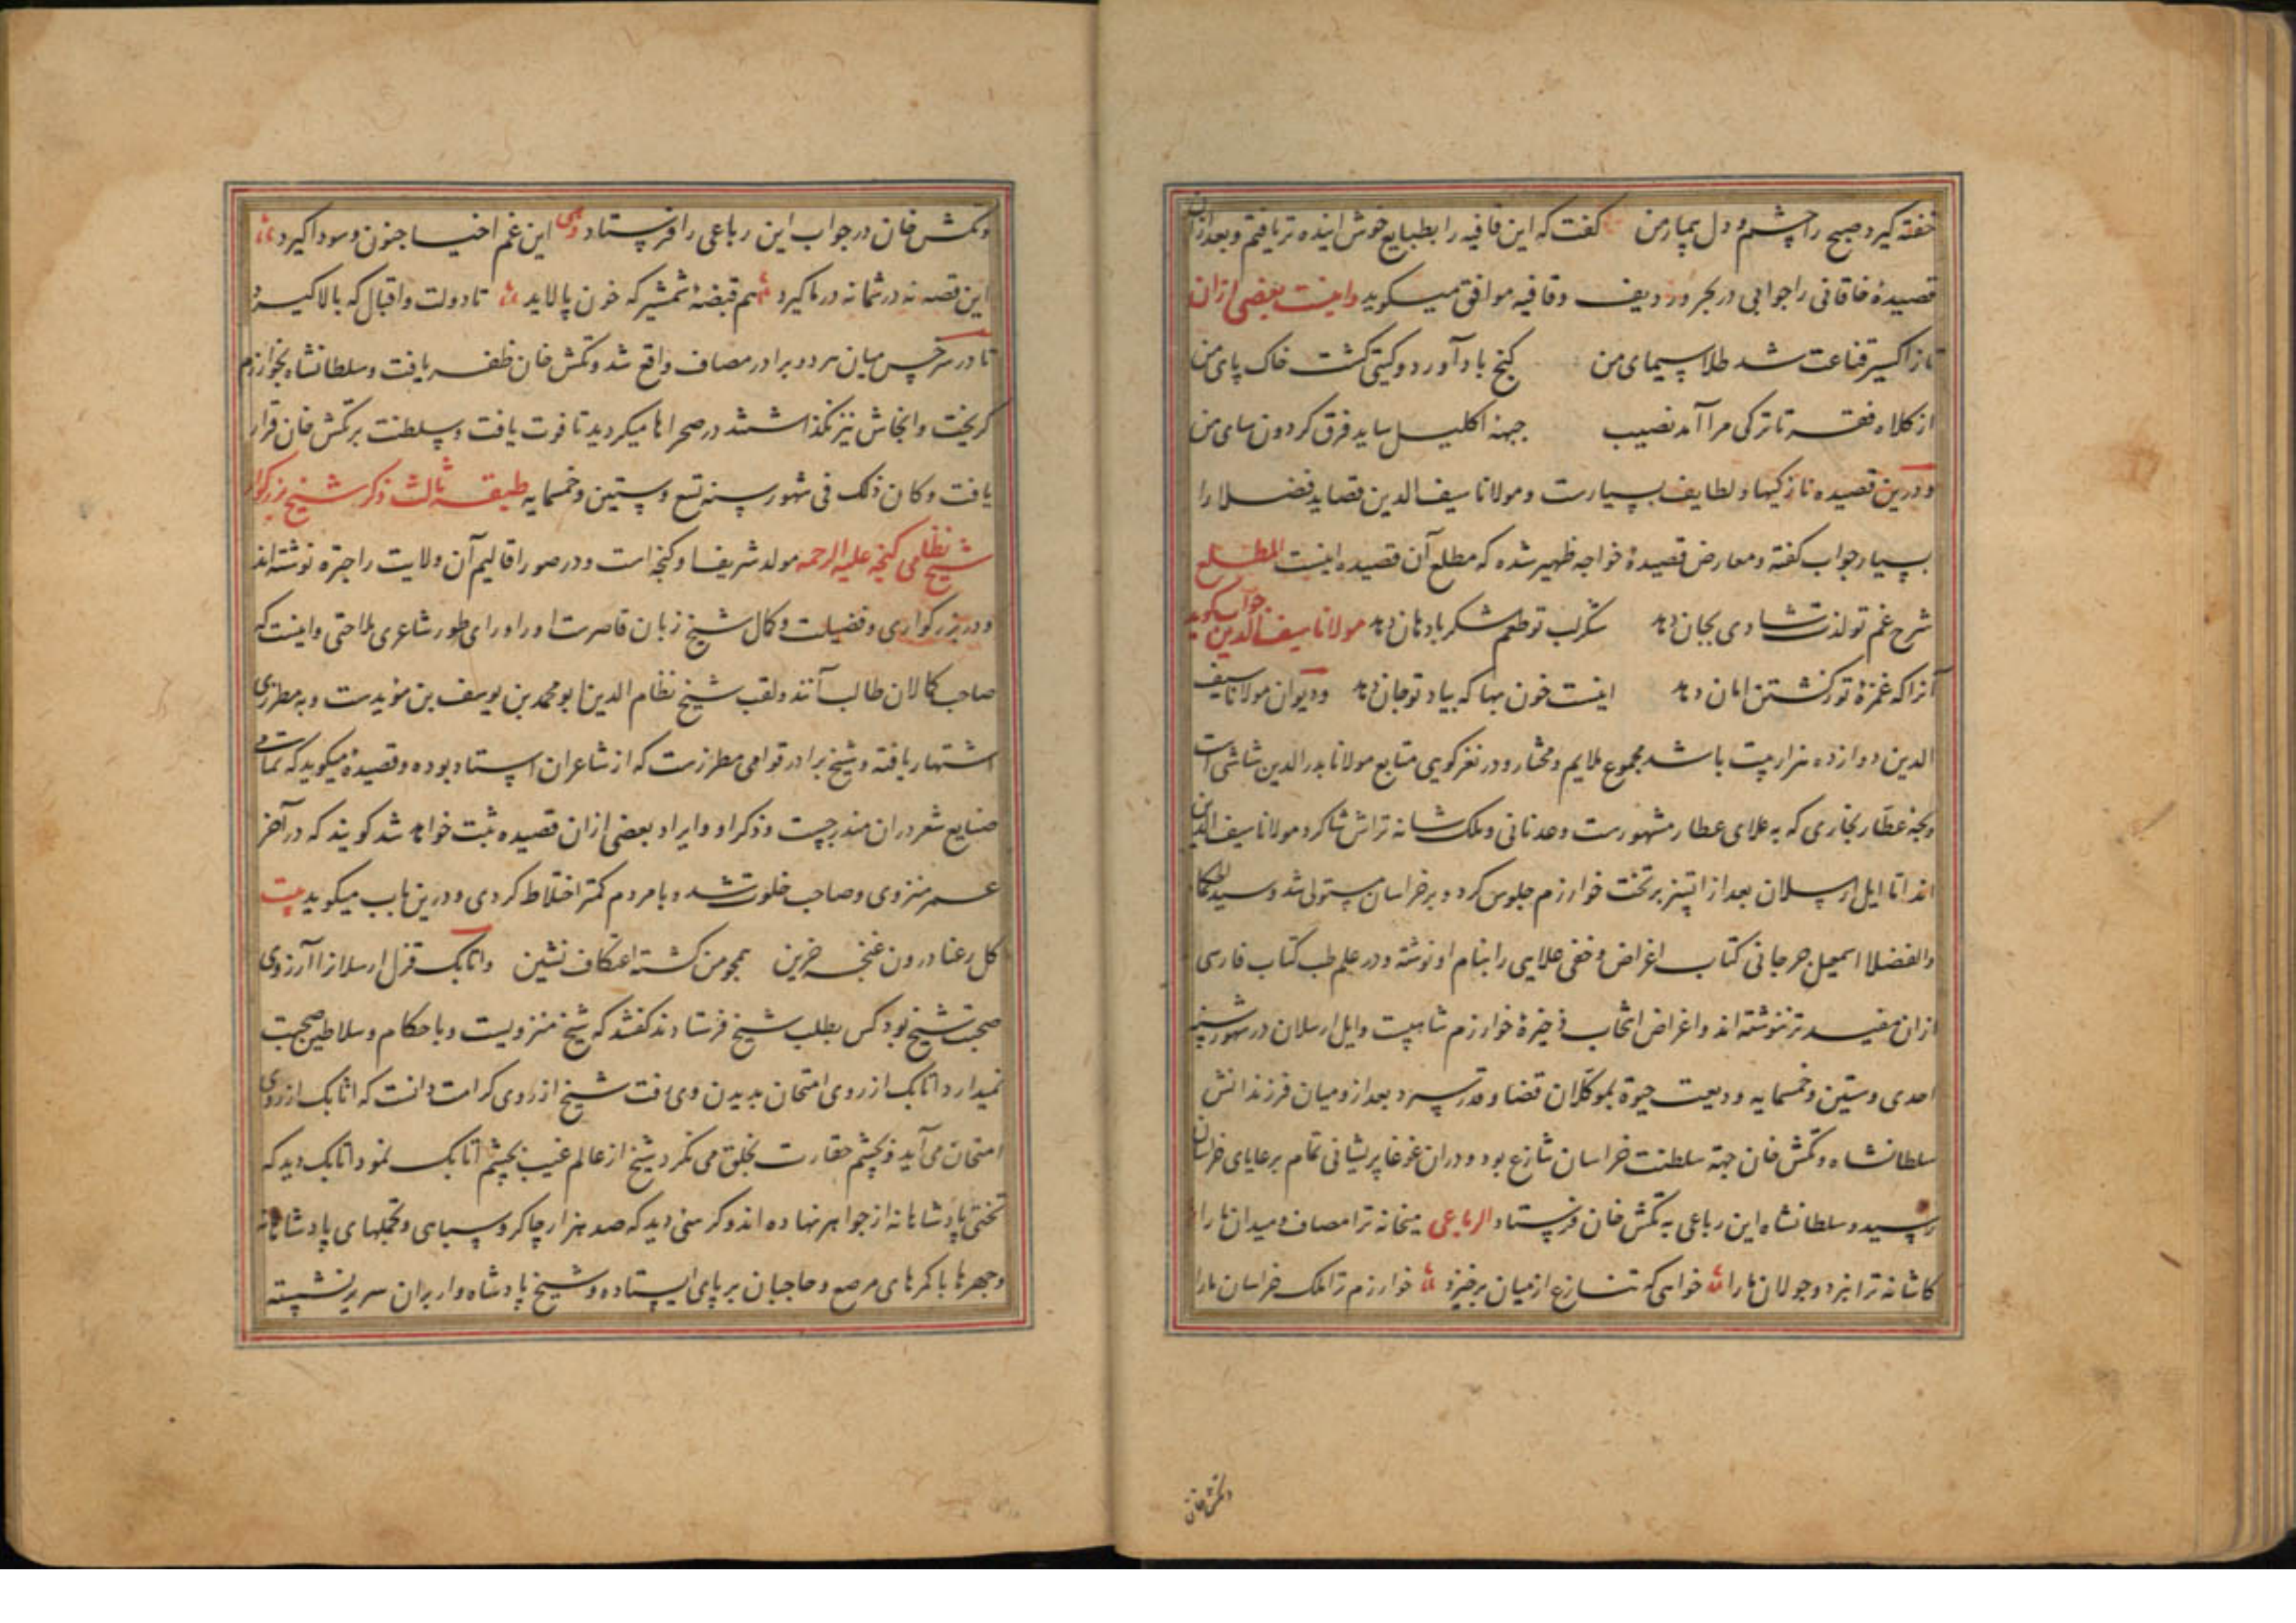 خفته گیرد صبح را چشم و دل بیمار من گفت که این قافیه را بطبایع خوش اینده تر یافتم و بعد ازان
قصیدهٔ خاقانی را جوابی در بحر و ردیف و قافیه موافق میگوید و اینست بعضی ازان
تا ز اکسیر قناعت شد طلا سیمای من گنج باد آورد و گیتی گشت خاک پای من
از کلاه فقر تا ترکی مرا آمد نصیب جبهه اکلیل ساید فرق گردون سای من
و درین قصیده نازکیها و لطایف بسیارست و مولانا سیف الدین قصاید فضلا را
بسیار جواب گفته و معارض قصیدهٔ خواجه ظهیر شده که مطلع آن قصیده اینست المطلع
شرح غم تو لذت شادی بجان دهد شکر لب تو طعم شکر بادهان دهد مولانا سیف الدین جواب گوید
آنرا که غمزهٔ تو ز کشتن امان دهد اینست خون بها که بیاد تو جان دهد و دیوان مولانا سیف
الدین دوازده هزار بیت باشد مجموع ملایم و مختار و در نغز گویی متابع مولانا بدر الدین شاشی است
و نجیه عطار بخاری که به علای عطار مشهورست و عدنانی و ملک شانه تراش شاگرد مولانا سیف الدین
اند اتا ایل ارسلان بعد از اتسز بر تخت خوارزم جلوس کرد و بر خراسان مستولی شد و سید الحکما
والفضلا اسمعیل جرجانی کتاب اغراض و خفی علایی را بنام او نوشته و در علم طب کتاب فارسی
ازان مفیدتر ننوشته اند و اغراض انتخاب ذخیرهٔ خوارزم شاهیست و ایل ارسلان در شهور سنه
احدی وستین وخمسمایه ودیعت حیوة بموکلان قضا و قدر سپرد بعد ازو میان فرزندانش
سلطانشاه و تکش خان جهة سلطنت خراسان تنازع بود و دران غوغا پریشانی تمام برعایای خراسان
رسید و سلطانشاه این رباعی به تکش خان فرستاد الرباعی میخانه ترا مصاف و میدان ما را
کاشانه ترا نبرد و جولان ما را خواهی که تنازع از میان برخیزد خوارزم ترا ملک خراسان ما را
و تکش خان
و تکش خان در جواب این رباعی را فرستاد وهی این غم اخیا جنون و سودا گیرد
این قصه نه در شما نه در ما گیرد هم قبضهٔ شمشیر که خون پالاید تا دولت و اقبال که بالا گیرد
تا در سرخس میان هر دو برادر مصاف واقع شد و تکش خان ظفر یافت و سلطانشاه بخوارزم
گریخت و انجاش نیز نگذاشتند در صحراها میگردید تا فوت یافت و سلطنت بر تکش خان قرار
یافت و کان ذلک فی شهور سنه تسع وستین وخمسمایه طبقه ثالث ذکر شیخ بزرگوار
شیخ نظامی گنجه علیه الرحمه مولد شریف او گنجه است و در صور اقالیم آن ولایت را جنزه نوشته اند
و در بزرگواری و فضیلت و کمال شیخ زبان قاصرست او را ورای طور شاعری ملاحتی و اینست که
صاحب کمالان طالب آنند و لقب شیخ نظام الدین ابو محمد بن یوسف بن مؤیدست و به مطرزی
اشتهار یافته و شیخ برادر قوامی مطرزست که از شاعران استاد بوده و قصیدهٔ میگوید که تمامت
صنایع شعر دران مندرجست و ذکر او و ایراد بعضی ازان قصیده ثبت خواهد شد گویند که در آخر
عمر منزوی و صاحب خلوت شد و با مردم کمتر اختلاط کردی و درین باب میگوید بیت
گل رعنا درون غنچه حزین همچو من گشته اعتکاف نشین و اتابک قزل ارسلانرا آرزوی
صحبت شیخ بود کس بطلب شیخ فرستادند گفتند که شیخ منزویست و با حکام و سلاطین صحبت
نمیدارد اتابک از روی امتحان بدیدن وی رفت شیخ از روی کرامت دانست که اتابک از روی
امتحان می آید و بچشم حقارت بخلق می نگرد شیخ از عالم غیب بچشم اتابک نمود اتابک دید که
تختی پادشاهانه از جواهر نهاده اند و کرسی دید که صد هزار چاکر و سپاهی و تجملهای پادشاهانه
و چهرها با کمرهای مرصع و حاجبان بر پای ایستاده و شیخ پادشاه وار بران سریر نشسته